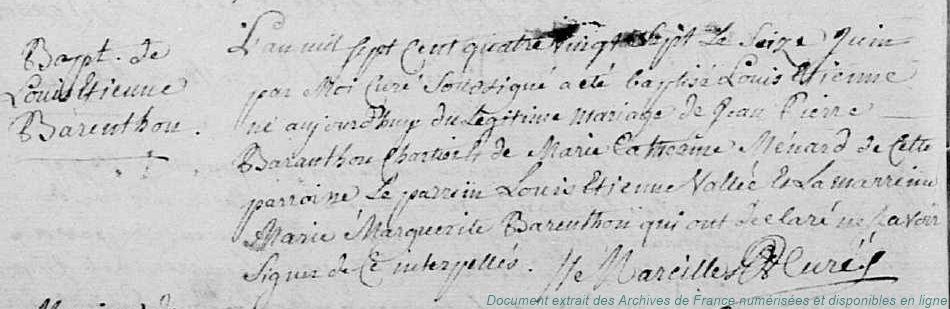 Bapt. de
Louis Etienne
Barenthon.
L'an mil sept Cent quatre vingt sept Le Seize Juin
par Moi Curé Soussigné a été baptisé Louis Etienne
né aujourd'huy du Légitime mariage de Jean Pierre
Baranthon Chartier & de Marie Catherine Ménard de Cette
parroisse Le parrein Louis Etienne Vallée Et La marreinne
Marie Marguerite Barenthon qui ont déclaré ne Savoir
Signer de Ce interpellés.
Curé
Document extrait des Archives de France numérisées et disponibles en ligne